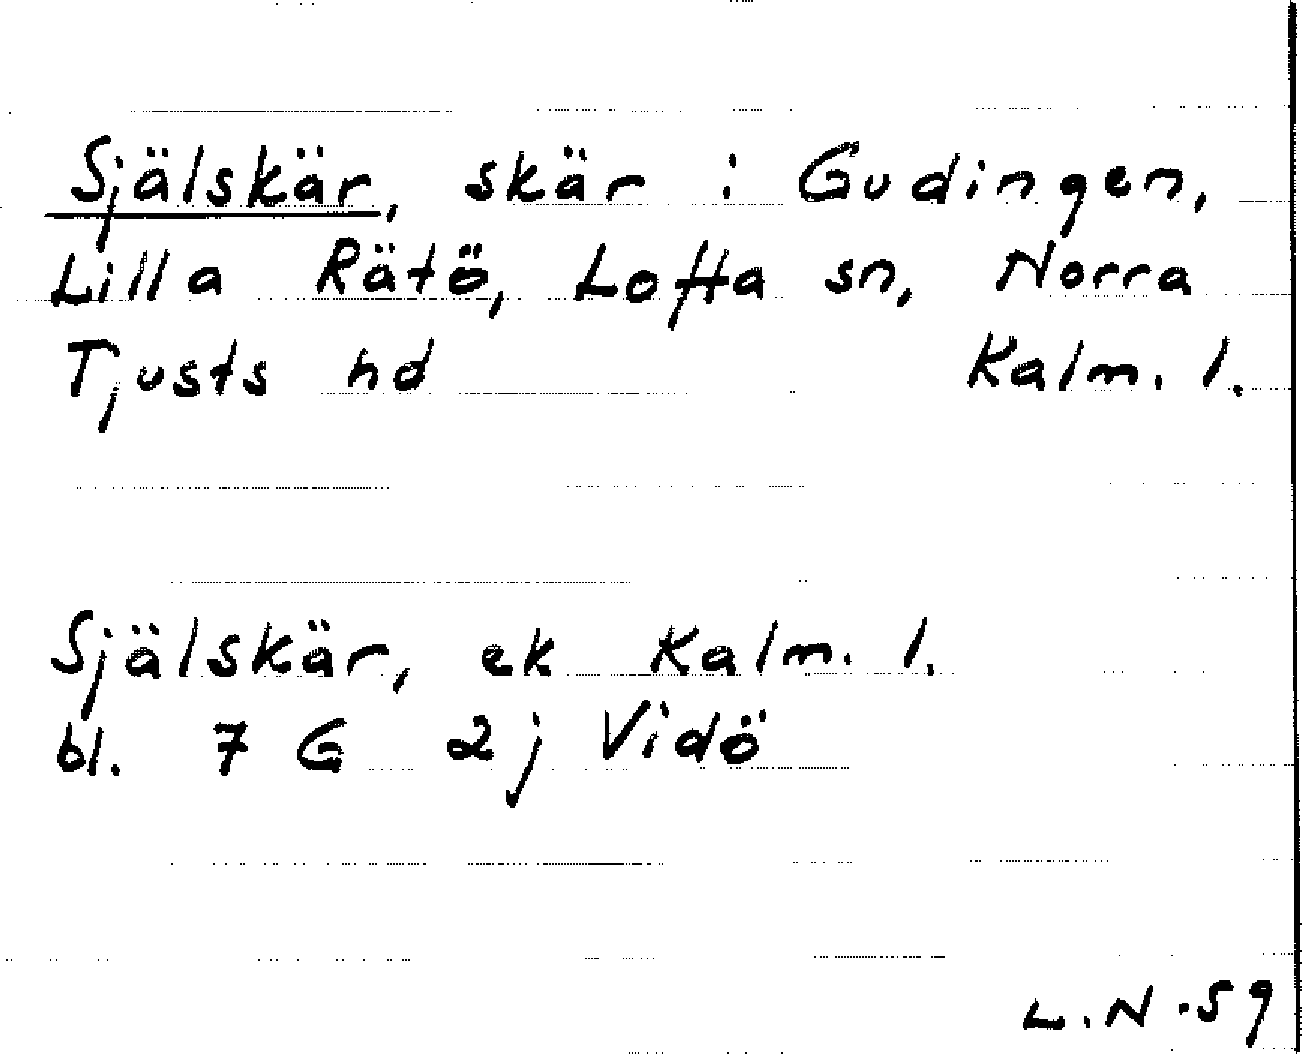 Själskär, skär i Gudingen,
Lilla Rätö, Lofta sn, Norra
Tjusts hd Kalm. l.
Själskär, ek Kalm. l.
bl. 7 G 2j Vidö
L.N.59